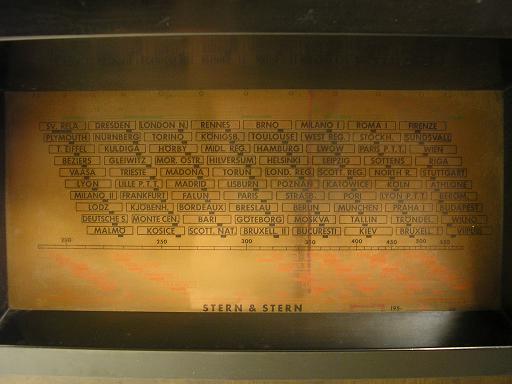 SV. RELÄ DRESDEN LONDON N. RENNES BRNO MILANO I ROMA I FIRENZE
PLYMOUTH NÜRNBERG TORINO KÖNIGSB. TOULOUSE WEST REG. STOCKH. SUNDSVALL
T. EIFFEL KULDIGA HÖRBY MIDL. REG. HAMBURG LWOW PARIS P.T.T. WIEN
BEZIERS GLEIWITZ MOR. OSTR. HILVERSUM HELSINKI LEIPZIG SOTTENS RIGA
VAASA TRIESTE MADONA TORUN LOND. REG. SCOTT. REG. NORTH R. STUTTGART
LYON LILLE P.T.T. MADRID LISBURN POZNAN KATOWICE KÖLN ATHLONE
MILANO II FRANKFURT FALUN PARIS STRASB. PORI LYON P.T.T. BEROM.
LODZ KJÖBENH. BORDEAUX BRESLAU BERLIN MÜNCHEN PRAHA I BUDAPEST
DEUTSCHE S. MONTE CEN. BARI GÖTEBORG MOSKVA TALLIN TRÖNDEL. WILNO
MALMÖ KOSICE SCOTT. NAT. BRUXELL. II BUCURESTI KIEV BRUXELL. I VIIPURI
250 300 350 400 450 500 550
STERN & STERN